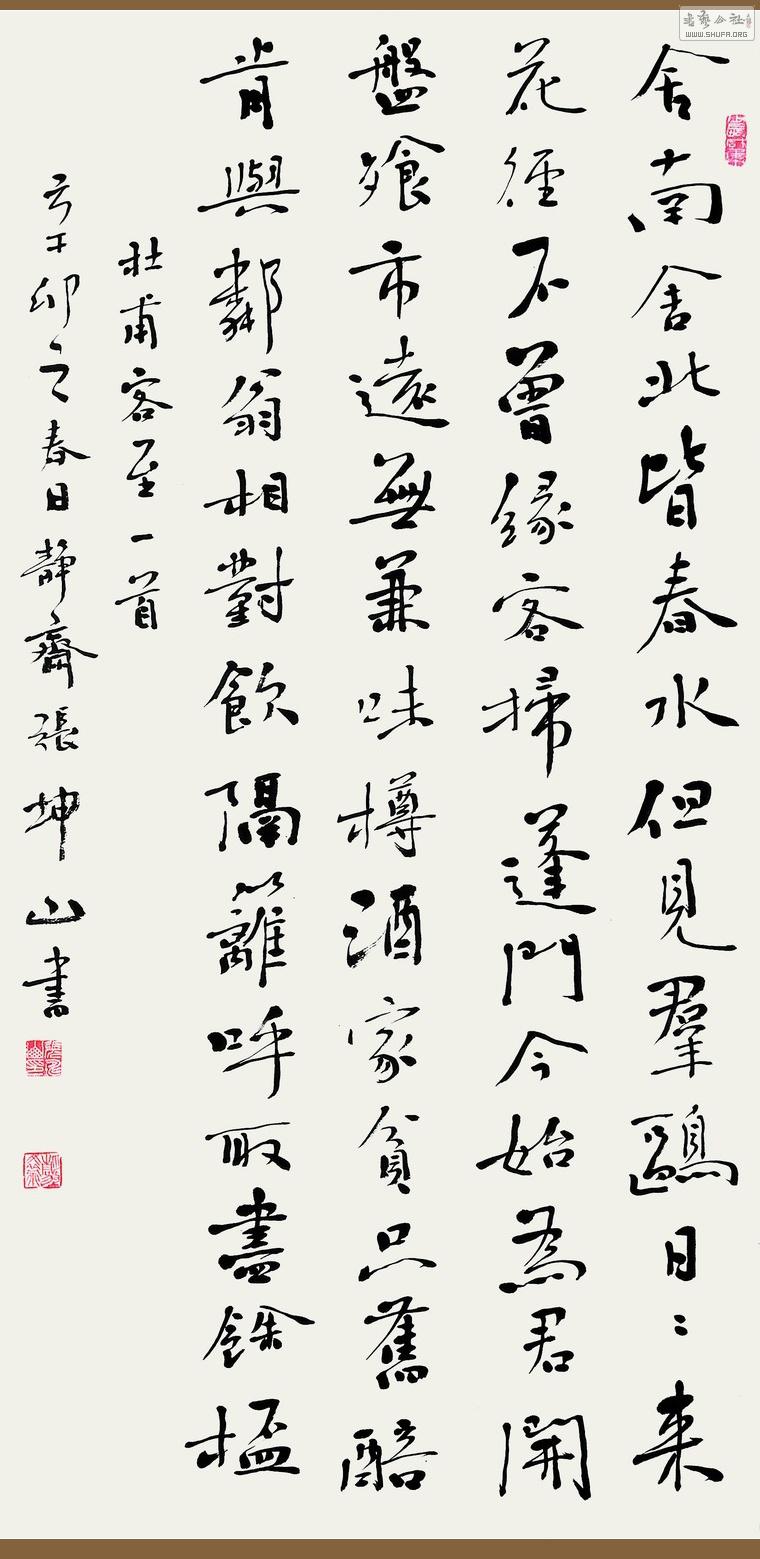 舍南舍北皆春水但見羣鷗日〻来
花徑不曾緣客掃蓬門今始為君開
盤飱市遠無兼味樽酒家貧只舊醅
肯與鄰翁相對飲隔籬呼取盡餘杯
杜甫客至一首
辛卯之春日靜齋張坤山書
书艺公社
WWW.SHUFA.ORG